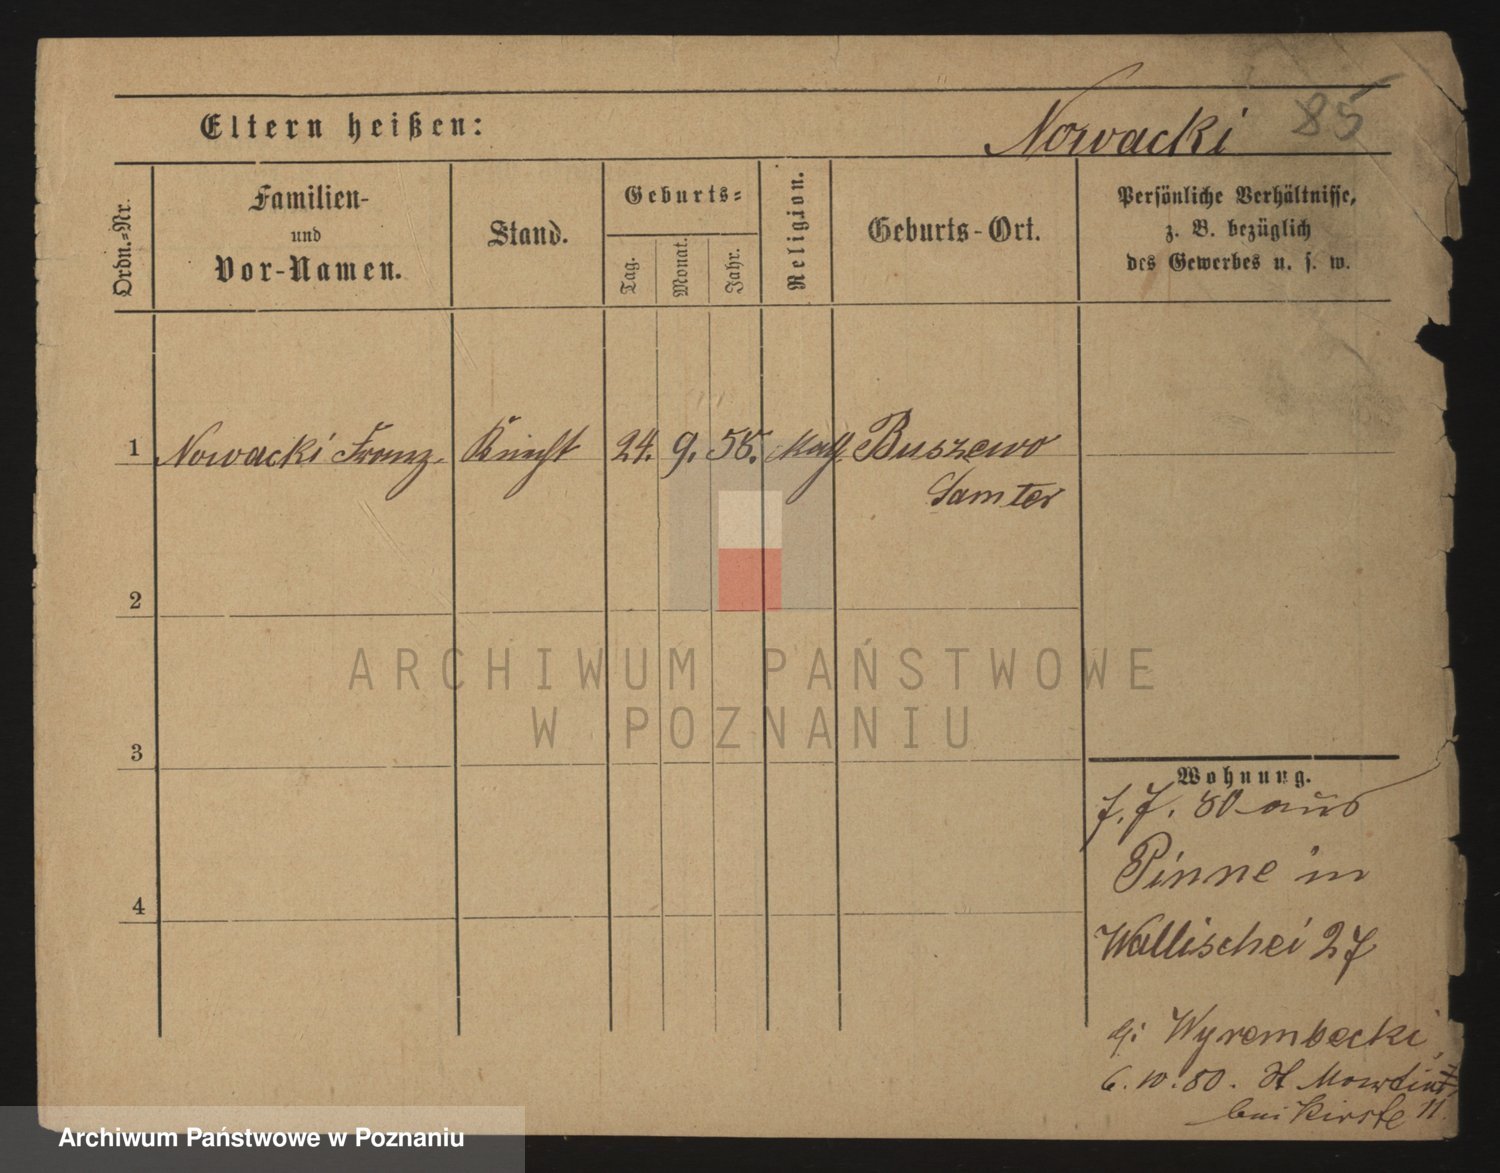 85
Eltern heißen: Nowacki
Ordn.=Nr.
Familien-
und
Vor-Namen.
Stand.
Geburts=
Tag.
Monat.
Jahr.
Religion.
Geburts-Ort.
Persönliche Verhältnisse,
z. B. bezüglich
des Gewerbes u. s. w.
1 Nowacki Franz. Knecht 24. 9. 55. kath. Buszewo
Samter
2
3
4
ARCHIWUM PAŃSTWOWE
W POZNANIU
Wohnung.
7. 80 aus
Pinne in
Wallischei 27
bei Wyrembecki,
6. 10. 80. St Martin
bei Kirste 11.
Archiwum Państwowe w Poznaniu